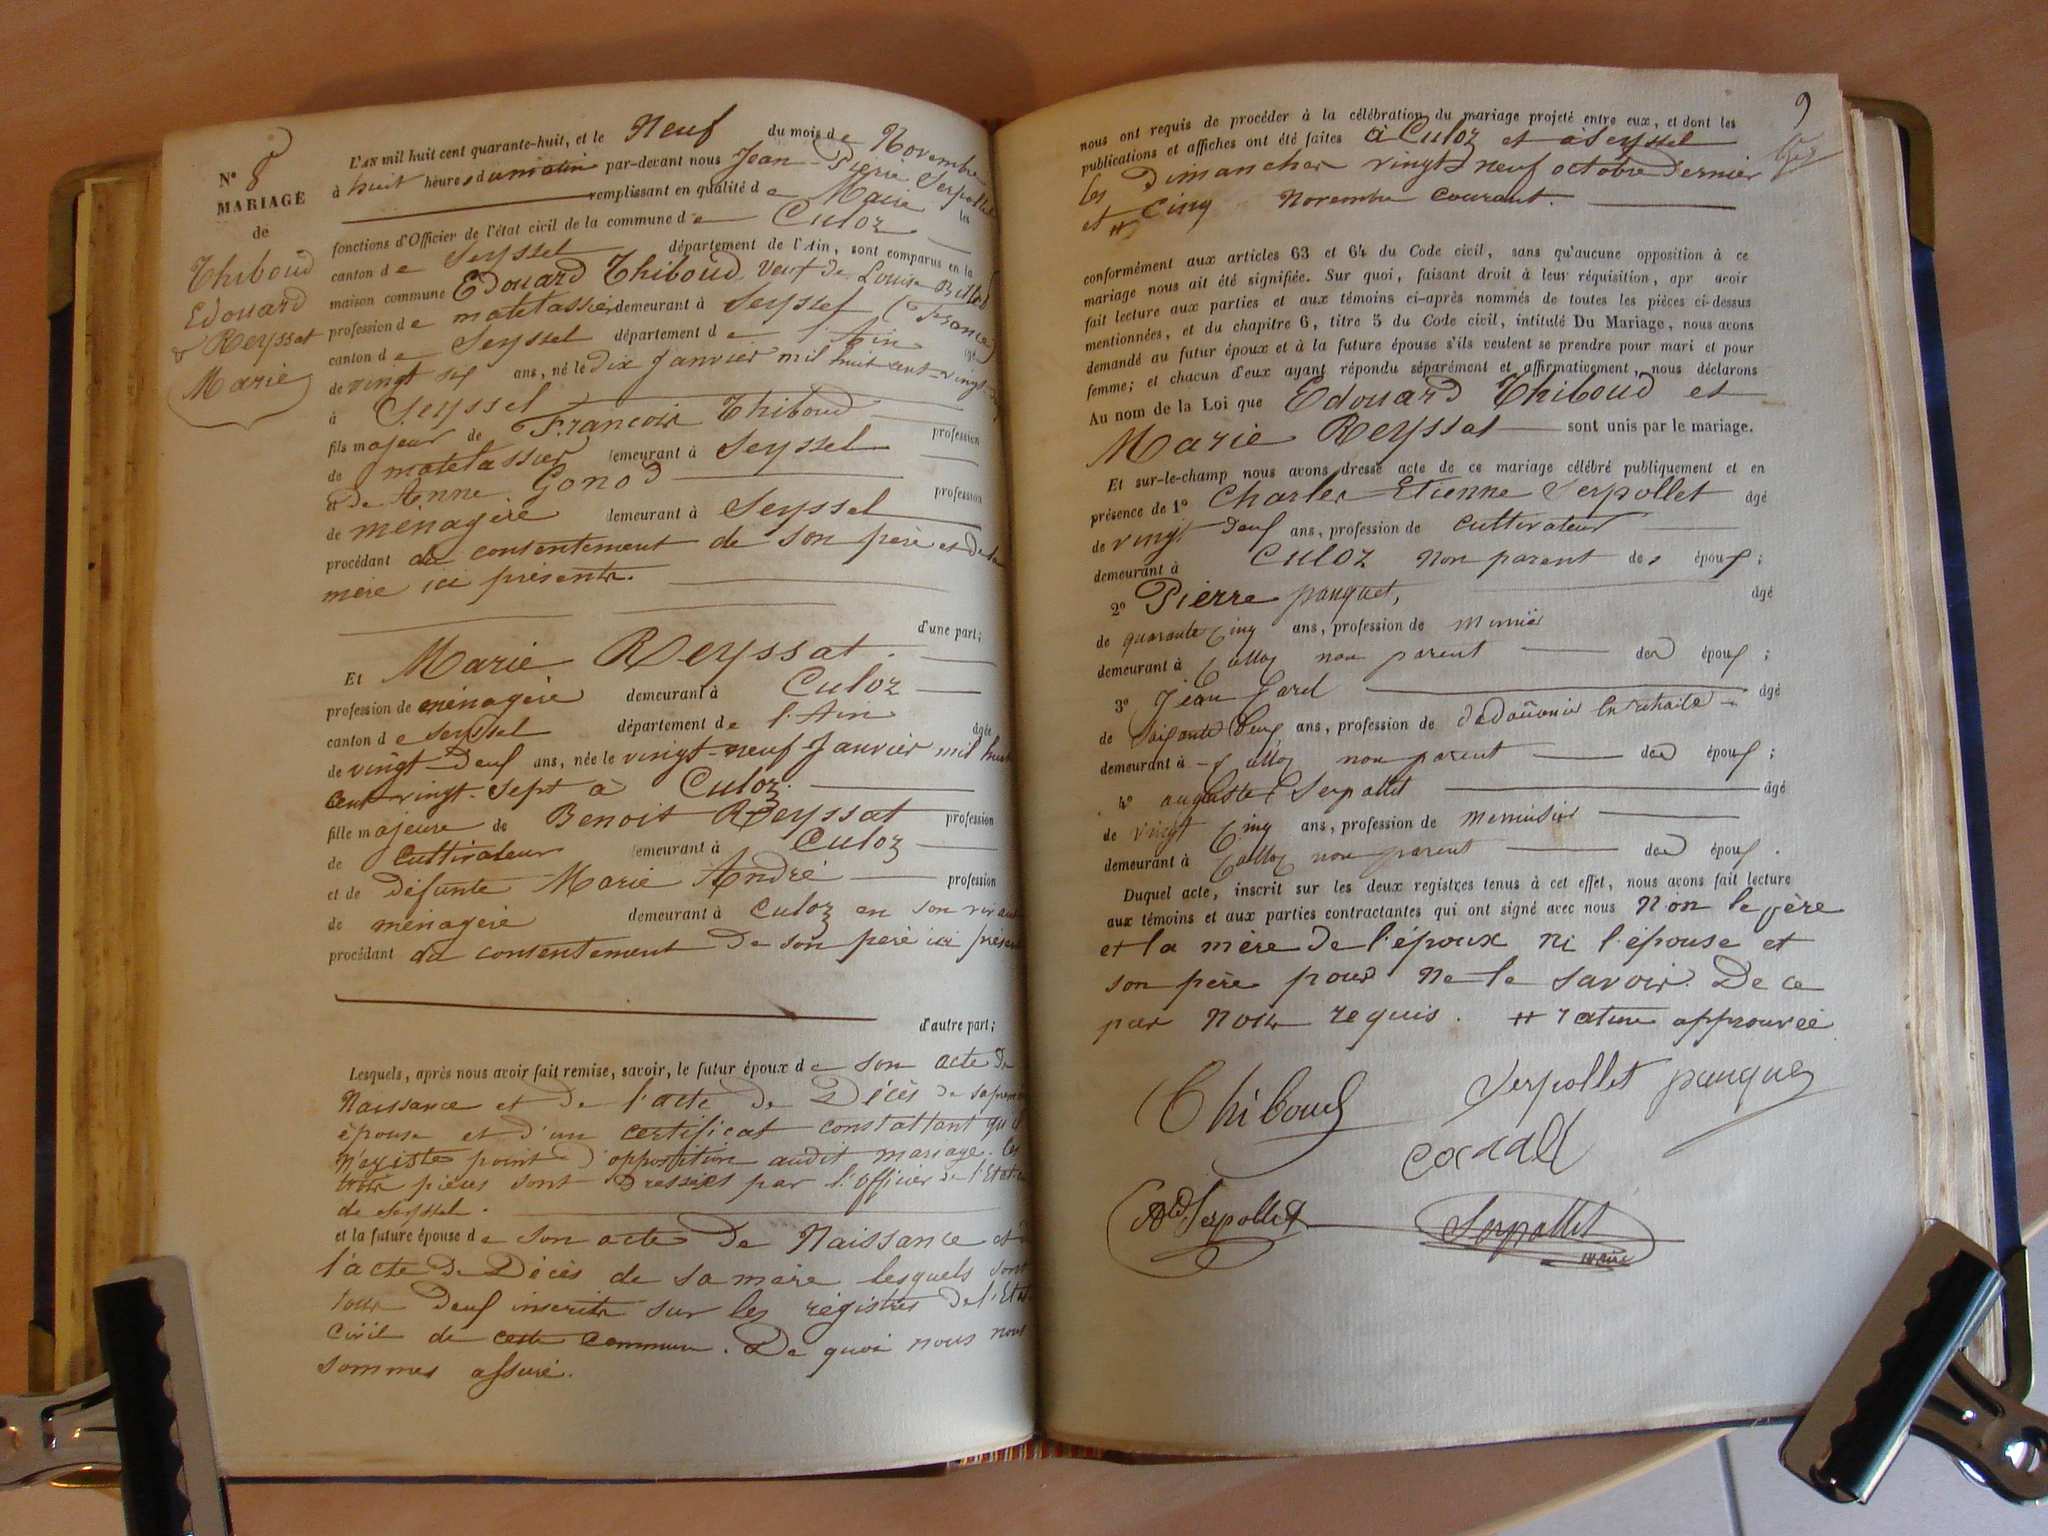 N° 8
MARIAGE
de
Thiboud
Edouard
& Reyssat
Marie
L'AN mil huit cent quarante-huit, et le Neuf du mois de Novembre
à huit heures du matin par-devant nous Jean-Pierre Serpollet
remplissant en qualité de Maire les
fonctions d'Officier de l'état civil de la commune de Culoz
canton de Seyssel département de l'Ain, sont comparus en la
maison commune Edouard Thiboud, veuf de Louise
profession de matelassier demeurant à Seyssel (France)
canton de Seyssel département de l'Ain âgé
de vingt six ans, né le dix Janvier mil huit cent vingt
à Seyssel
fils majeur de François Thiboud profession
de matelassier demeurant à Seyssel
et de Anne Gonod profession
de ménagère demeurant à Seyssel
procédant du consentement de son père et de sa
mère ici présents.
d'une part;
Et Marie Reyssat.
profession de ménagère demeurant à Culoz
canton de Seyssel département de l'Ain âgée
de vingt-deuf ans, née le vingt-neuf Janvier mil huit
cent vingt-sept à Culoz.
fille majeure de Benoit Reyssat profession
de Cultivateur demeurant à Culoz
et de défunte Marie André profession
de ménagère demeurant à Culoz en son vivant
procédant du consentement de son père ici présent
d'autre part;
Lesquels, après nous avoir fait remise, savoir, le futur époux de son acte de
Naissance et de l'acte de Décès de sa première
épouse et d'un certificat constattant qu'il
n'existe point d'opposition audit mariage. Ces
trois pièces sont dressées par l'officier de l'Etat-civil
de Seyssel.
et la future épouse de son acte de Naissance et de
l'acte de Décès de sa mère lesquels sont
tous deuf inscrits sur les régistres de l'Etat
Civil de cette commune. De quoi nous nous
sommes assuré.
9
nous ont requis de procéder à la célébration du mariage projeté entre eux, et dont les
publications et affiches ont été faites à Culoz et à Seyssel
les Dimanches vingt neuf octobre dernier
et # Cinq Novembre Courant.
conformément aux articles 63 et 64 du Code civil, sans qu'aucune opposition à ce
mariage nous ait été signifiée. Sur quoi, faisant droit à leur réquisition, apr avoir
fait lecture aux parties et aux témoins ci-après nommés de toutes les pièces ci-dessus
mentionnées, et du chapitre 6, titre 5 du Code civil, intitulé Du Mariage, nous avons
demandé au futur époux et à la future épouse s'ils veulent se prendre pour mari et pour
femme; et chacun d'eux ayant répondu séparément et affirmativement, nous déclarons
Au nom de la Loi que Edouard Thiboud et
Marie Reyssat sont unis par le mariage.
Et sur-le-champ nous avons dressé acte de ce mariage célébré publiquement et en
présence de 1° Charles Etienne Serpollet âgé
de vingt deuf ans, profession de Cultivateur
demeurant à Culoz non parent des épouf;
2° Pierre pauquet, âgé
de quarante Cinq ans, profession de
demeurant à Culloz non parent des épouf;
3° Jean âgé
de Soixante Deux ans, profession de dedouanier en retraite
demeurant à Culloz non parent des épouf;
4° auguste Serpollet âgé
de vingt Cinq ans, profession de Menuisier
demeurant à Culloz non parent des épouf.
Duquel acte, inscrit sur les deux registres tenus à cet effet, nous avons fait lecture
aux témoins et aux parties contractantes qui ont signé avec nous Non le père
et la mère de l'époux ni l'épouse et
son père pour ne le savoir. De ce
par nous requis. # rature approuvée
Thiboud Serpollet pauquet
Serpollet
Serpollet
maire